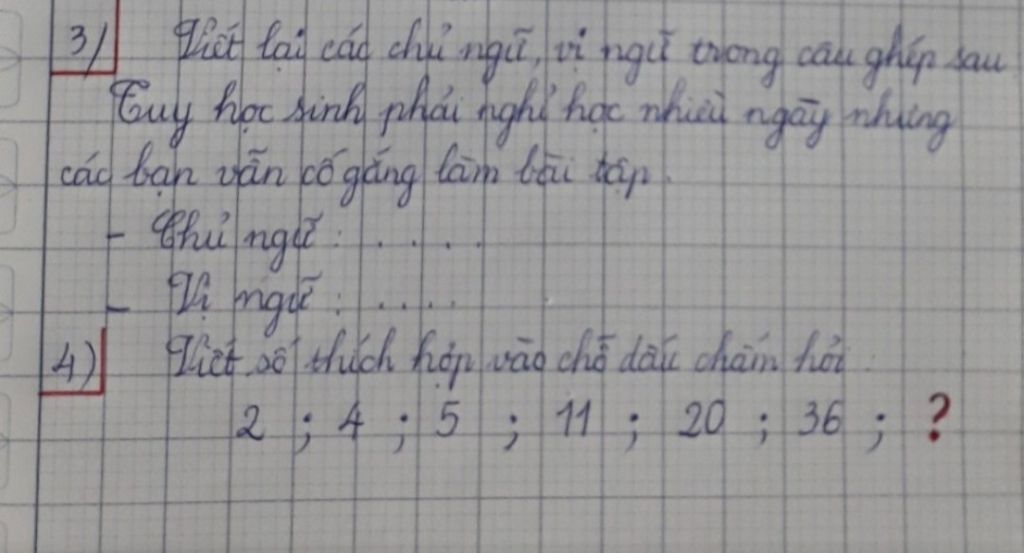 3) Viết lại các chủ ngữ, vị ngữ trong câu ghép sau
Tuy học sinh phải nghỉ học nhiều ngày nhưng
các bạn vẫn cố gắng làm bài tập.
- Chủ ngữ: . . . .
- Vị ngữ: . . . .
4) Viết số thích hợp vào chỗ dấu chấm hỏi:
2 ; 4 ; 5 ; 11 ; 20 ; 36 ; ?